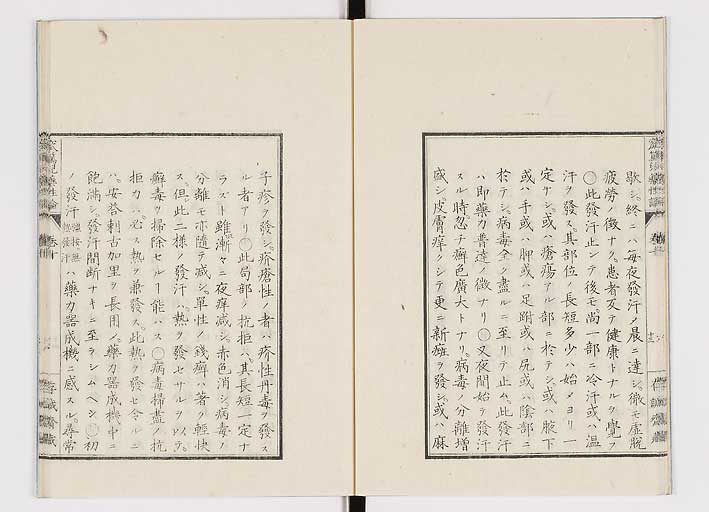 歇シ。終ニハ毎夜發汗シ。晨ニ達シ。徹モ虛脫
疲勞ノ徴ナク。患者反テ健康トナルヲ覺フ
〇此發汗止ンデ後モ尚一部ニ冷汗或ハ温
汗ヲ發ス。其部位ノ長短多少ハ始メヨリ一
定ナシ。或ハ瘡瘍アル部ニ於テシ。或ハ腋下
或ハ手或ハ胛或ハ足蹠或ハ尻或ハ陰部ニ
於テシ。病毒全ク盡ルニ至リテ止ム。此發汗
ハ即藥力普達ノ徴ナリ〇又夜間始テ發汗
スル時忽チ癬色廣大トナリ。病毒ノ分離增
減シ。皮膚痒クシテ更ニ新瘡ヲ發シ。或ハ麻
子疹ヲ發シ。疥瘡性ノ者ハ疥性丹毒ヲ發ス
ル者アリ〇此局部ノ抗拒ハ。其長短一定ナ
ラズト雖。漸々ニ夜痒減シ。赤色消シ。病毒ノ
分離モ亦隨テ減シ。單性ノ錢癬ハ著ク輕快
ス。但此二樣ノ發汗ハ。熱ヲ發セサルヲ以テ。
癬毒ヲ掃除セルヿ能ハス〇病毒掃盡ノ抗
拒力ハ。必ス熱ヲ兼發ス。此熱ヲ發セ令ルニ
ハ。安啓剌古加里ヲ長用シ。藥力器成機中ニ
飽滿シ。發汗間斷ナキニ至ラシムヘシ〇初
ノ發汗 ハ藥力器成機ニ感スル。尋常